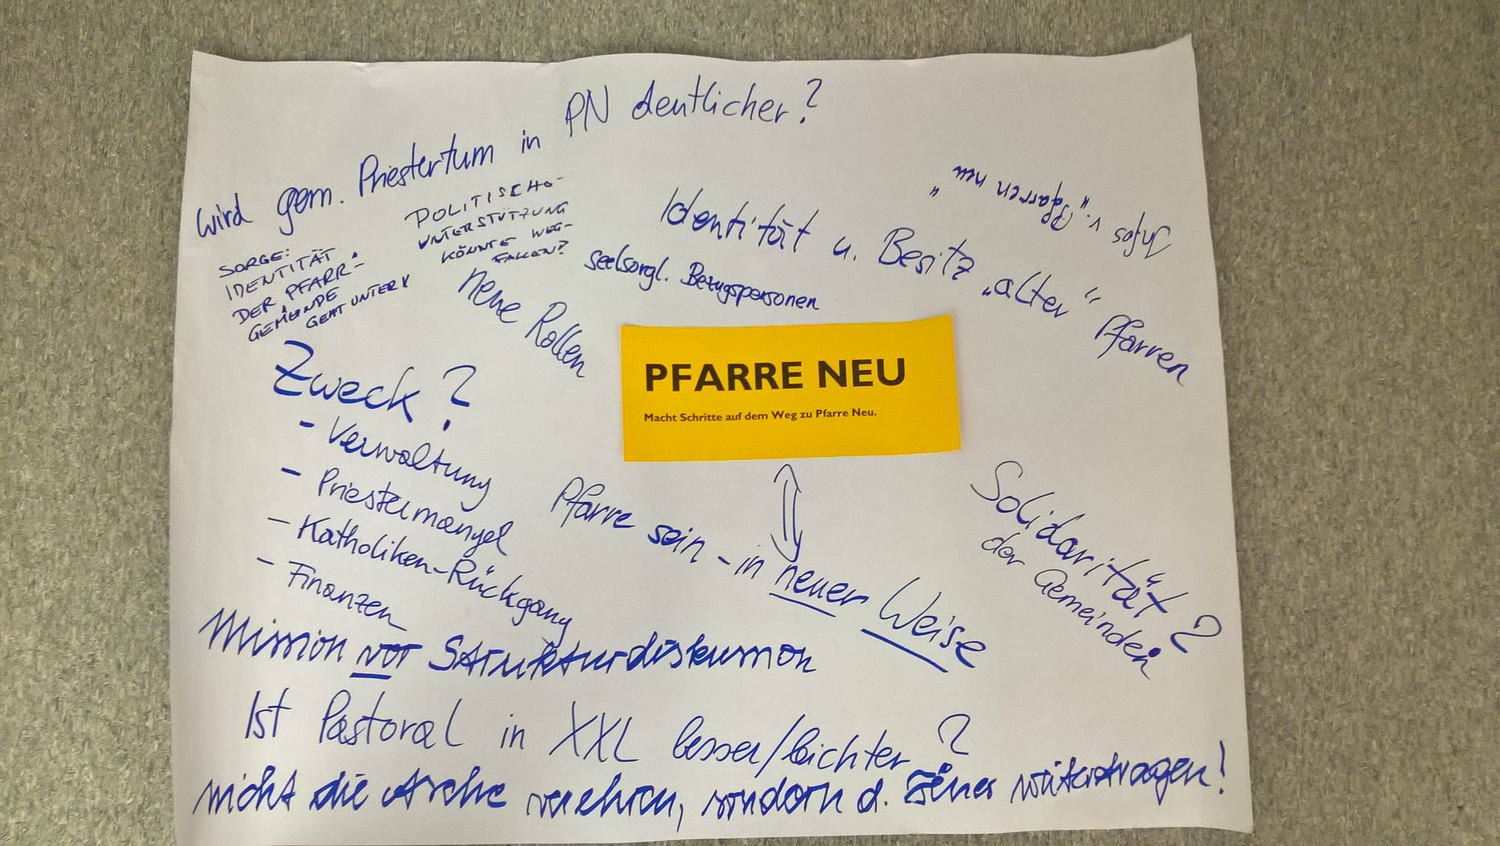 Wird gem. Priestertum in PN deutlicher?
SORGE:
IDENTITÄT
DER PFARR-
GEMEINDE
GEHT UNTER
POLITISCHE
UNTERSTÜTZUNG
KÖNNTE WEG-
FALLEN?
Identität u. Besitz „alter“ Pfarren
Infos v. „Pfarren neu“
seelsorgl. Bezugspersonen
neue Rollen
PFARRE NEU
Macht Schritte auf dem Weg zu Pfarre Neu.
Zweck?
- Verwaltung
- Priestermangel
- Katholiken-Rückgang
- Finanzen
Pfarre sein - in neuer Weise
Solidarität?
der Gemeinden
Mission vor Strukturdiskussion
Ist Pastoral in XXL besser/leichter?
nicht die Asche verehren, sondern d. Feuer weitertragen!